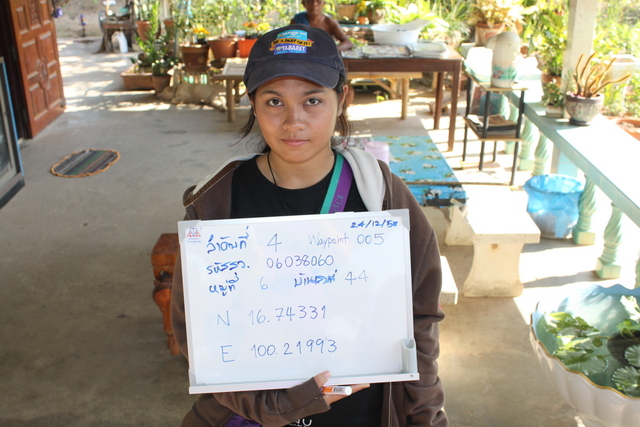 24/12/53
ลำดับที่ 4 Waypoint 005
รหัสรว. 06038060
หมู่ที่ 6 บ้านเลขที่ 44
N 16.74331
E 100.21993